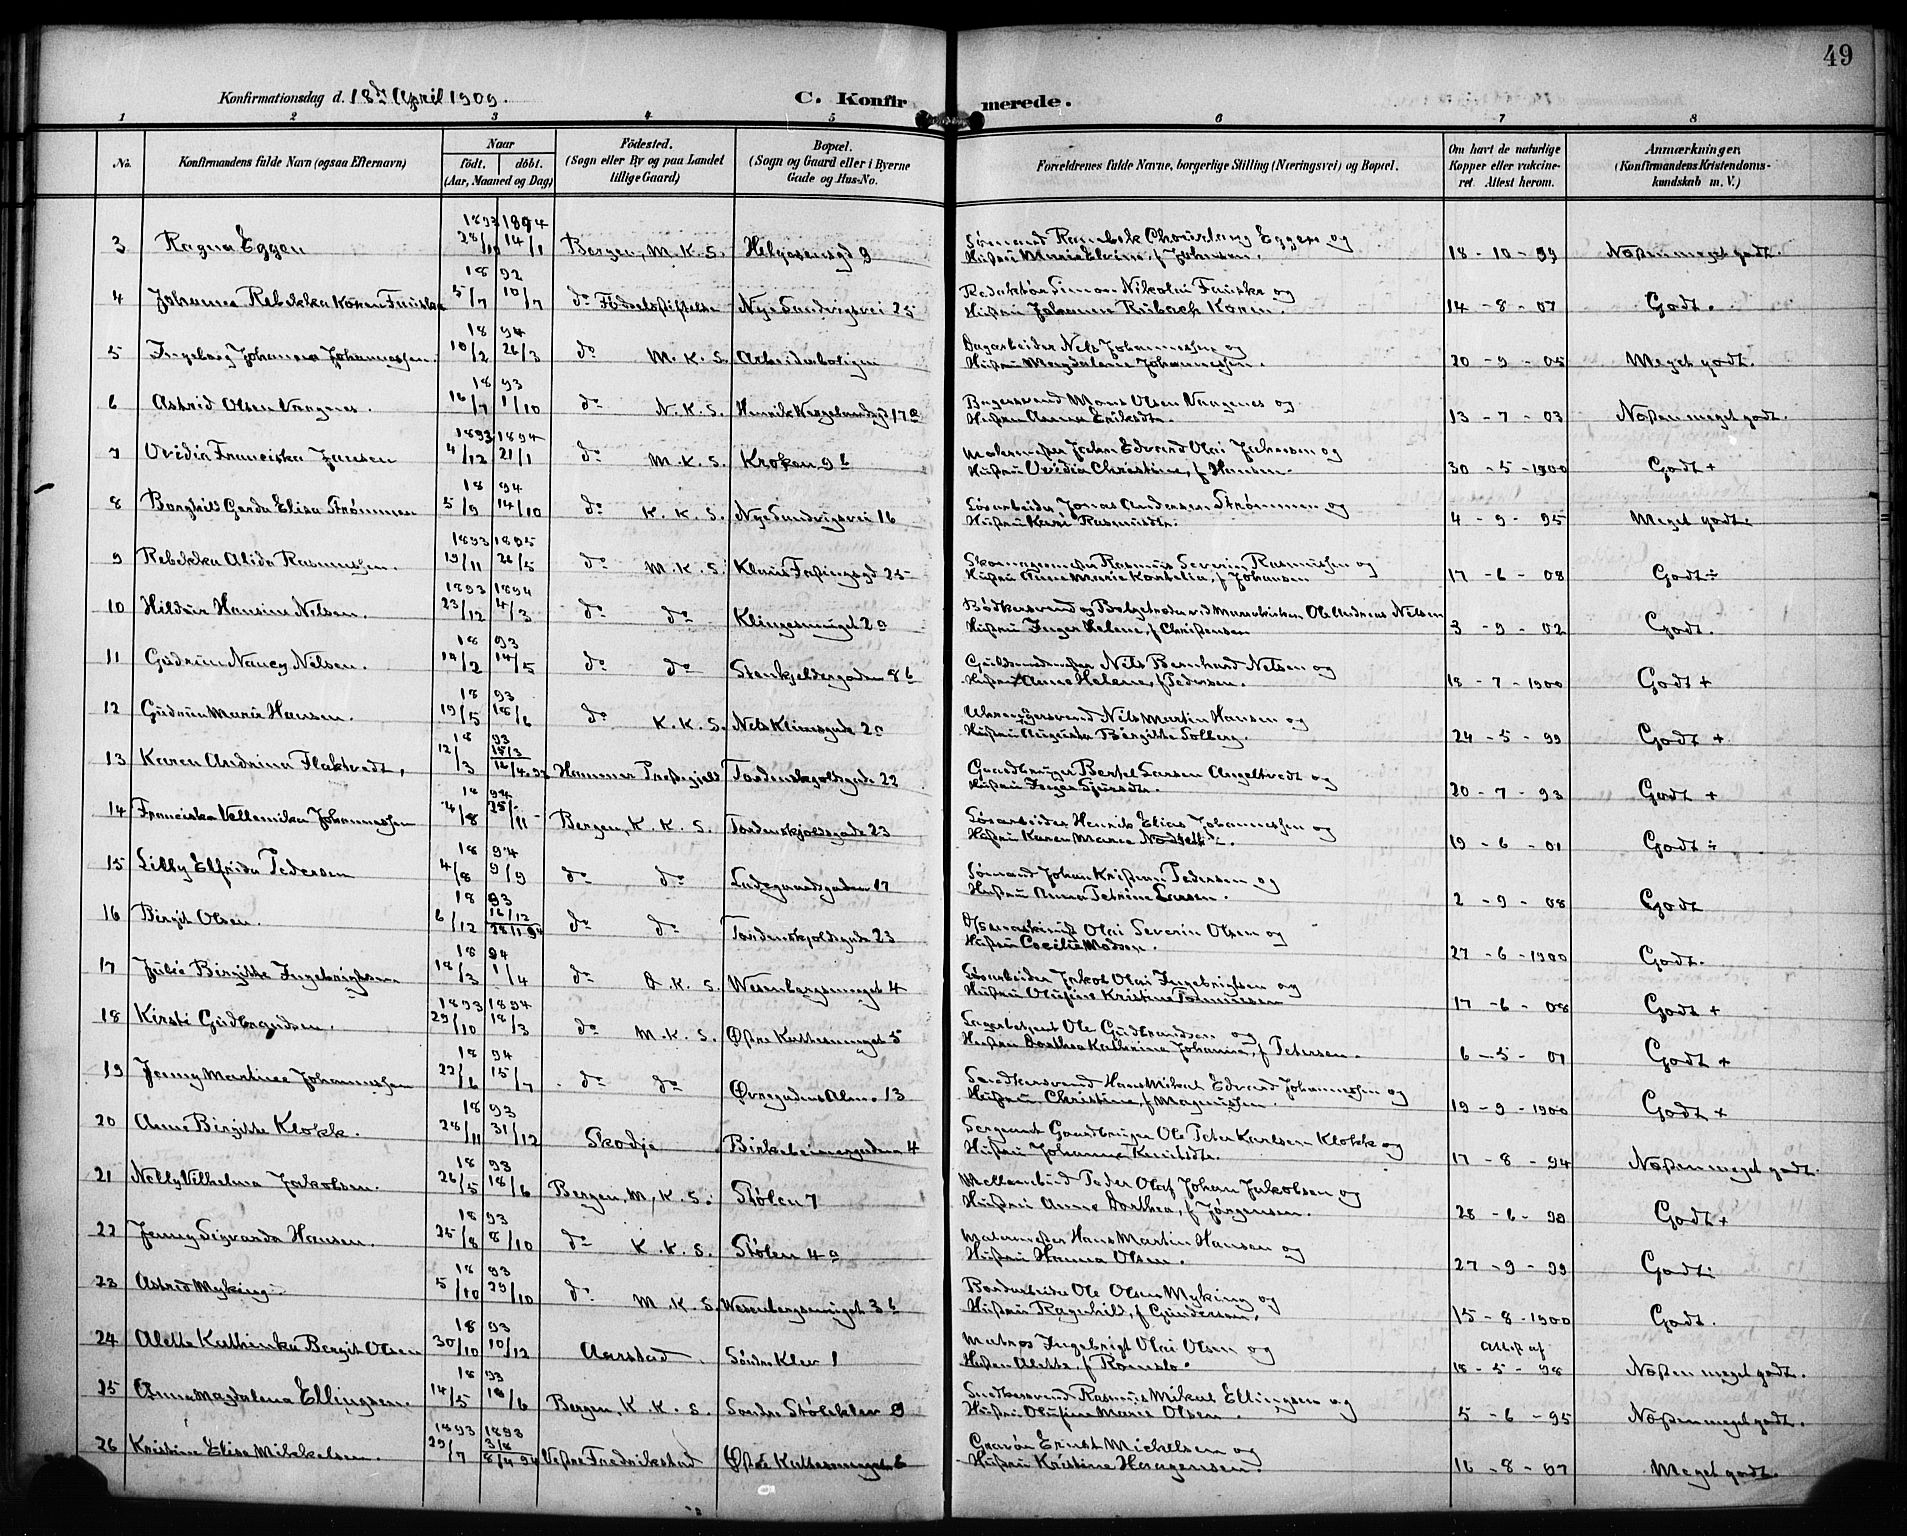 49
Konfirmationsdag d. 18de April 1909.
C. Konfirmerede.
1 2 3 4 5 6 7 8
No. Konfirmandens fulde Navn (ogsaa Efternavn) Naar født. døbt. (Aar, Maaned og Dag) Födested. (Sogn eller By og paa Landet tillige Gaard) Bopæl. (Sogn og Gaard eller i Byerne Gade og Hus-No. Forældrenes fulde Navne, borgerlige Stilling (Næringsvei) og Bopæl. Om havt de naturlige Kopper eller vakcineret. Attest herom. Anmærkninger, (Konfirmandens Kristendomskundskab m. V.)
1893 1894
3 Ragna Eggen 28/10 14/1 Bergen, M. K. S. Helgesensgd 9 Sømand Eggen og
Hustru Marie Elvine, f Johnsen. 18-10-99 Næsten meget godt.
18 92
4 Johanne Rebekka Koren Fauske 5/7 10/7 do Fødselsstiftelse Nye Sandvigsvei 25 Redaktør Simon Nikolai Fauske og
Hustru Johanne Rubach Koren. 14-8-07 Godt.
18 94
5 Ingeborg Johanne Johannessen. 10/2 26/3 do M. K. S. Arbeiderboligen Dagarbeider Nels Johannessen og
Hustru Magdalene Johannessen. 20-9-05 Meget godt.
18 93
6 Astrid Olsen Vangenes. 16/7 1/10 do N. K. S. Henrik Wergelandsgd 17a Bagersvend Mons Olsen Vangenes og
Hustru Anna Eriksdtr. 13-7-03 Næsten meget godt.
1893 1894
7 Ovidia Franciska Jansen 4/12 21/1 do M. K. S. Kroken 9b Malermester Johan Edvard Olai Johansen og
Hustru Ovidia Christine, f Hansen. 30-5-1900 Godt +
18 94
8 Borghild Gerda Elisa Strømmen 5/9 14/10 do K. K. S. Nye Sandvigsvei 16 Løsarbeider Jonas Andersen Strømmen og
Hustru Kari Rasmusdtr. 4-9-95 Meget godt.
1893 1895
9 Rebekka Alida Rasmussen. 19/11 26/5 do M. K. S. Klaus Fastingsgd 25 Skomagermester Rasmus Severin Rasmussen og
Hustru Anne Marie Kornelia, f Johansen 17-6-08 Godt ÷
1893 1894
10 Hildur Hansine Nilsen. 23/12 4/3 do do Klingesmuget 2a Bødkersvend og Bælgetræder ved Mariekirken Ole Andreas Nilsen
Hustru Inger Helene, f Christensen 3-9-02 Godt.
18 93
11 Gudrun Nancy Nilsen. 14/2 14/5 do do Stenkjeldergaden 8b Guldsmedmester Nils Bernhard Nelsen og
Hustru Anne Helene, f Pedersen. 18-7-1900 Godt +
18 93
12 Gudrun Marie Hansen. 19/5 18/6 do K. K. S. Nels Klimsgade 2a Uhrmagersvend Nils Martin Hansen og
Hustru Augusta Birgitte Solberg. 24-5-99 Godt +
18 93
13 Karen Andrina Flaktvedt, 12/3 Hammer Præstegjeld Tordenskjoldsgade 22 Gaardbruger Bertel Larsen Angeltvedt og
Hustru Inger Sjursdtr. 20-7-93 Godt +
18 94
14 Franciska Vellemika Johannessen 4/8 25/11 Bergen, K. K. S. Tordenskjoldsgade 23 Løsarbeider Henrik Elias Johannessen og
Hustru Karen Marie 19-6-01 Godt ÷
18 94
15 Lilly Elfrida Pedersen 4/8 9/9 do do Ladegaardsgaden 17 Sømand Johan Kristian Pedersen og
Hustru Anna Petrine Larsen. 2-9-08 Godt
18 93
16 Birgit Olsen. 6/12 16/12 28/1 94 do do Tordenskjoldsgade 23 Olai Severin Olsen og
Hustru Cecilie Madsen. 27-6-1900 Godt.
18 94
17 Julie Birgitte Ingebrigtsen 18/3 1/4 do D. K. S. Wesenbergsmuget 4 Løsarbeider Jakob Olai Ingebrigtsen og
Hustru Olufine Kristine Tønnessen 17-6-08 Godt +
1893 1894
18 Kirsti Gudbrandsen. 29/10 18/3 do M. K. S. Østre Kattesmuget 5 Lagerbetjent Ole Gudbrandsen og
Hustru Dorthea Kathrine Johanne, f Petersen. 6-5-01 Godt +
18 94
19 Jenny Martine Johannessen 22/6 15/7 do do Øvregadens Alm. 13 Snedkersvend Hans Mikal Edvard Johannessen og
Hustru Christine, f Magnussen. 19-9-1900 Godt +
18 93
20 Anne Birgitte Klokk. 28/11 31/12 Skodje Birkebeinergaden 4 Sergeant Gaardbruger Ole Peter Karlsen Klokk og
Hustru Johanne Knutsdtr. 17-8-94 Næsten meget godt.
18 93
21 Nelly Vilhelma Jakobsen. 26/5 18/6 Bergen, M. K. S. Stølen 7 Mellembud Peder Olaf Johan Jakobsen og
Hustru Anne Dorthea, f Jørgensen. 28-6-99 Godt +
18 93
22 Jenny Sigvarda Hansen. 25/8 8/10 do K. K. S. Stølen 4a Malermester Hans Martin Hansen og
Hustru Hanna Olsen. 27-9-99 Godt.
18 93
23 Astrid Myking 5/10 29/10 do M. K. S. Wesenbergsmuget 3b Bordarbeider Ole Olsen Myking og
Hustru Ragnhild, f Gundersen. 15-8-1900 Godt.
18 93
24 Alette Kathinka Bergit Olsen 30/10 10/12 Aarstad. Søndre Klev 1 Matros Ingebrigt Olai Olsen og
Hustru Alette, f Romslo. Attest af 18-5-98 Næsten meget godt.
18 93
25 Anna Magdalena Ellingsen. 14/5 18/6 Bergen, K. K. S. Søndre Stølekler 9 Snedkersvend Rasmus Mikal Ellingsen og
Hustru Olufine Marie Olsen. 5-6-95 Næsten meget godt.
1893 1893
26 Kristine Elise Mikkelsen. 29/7 3/8 8/4 94 Vestre Fredrikstad Østre Kattesmuget 6 Gravør Ernst Michelsen og
Hustru Kristine Haagensen. 16-8-07 Meget godt.